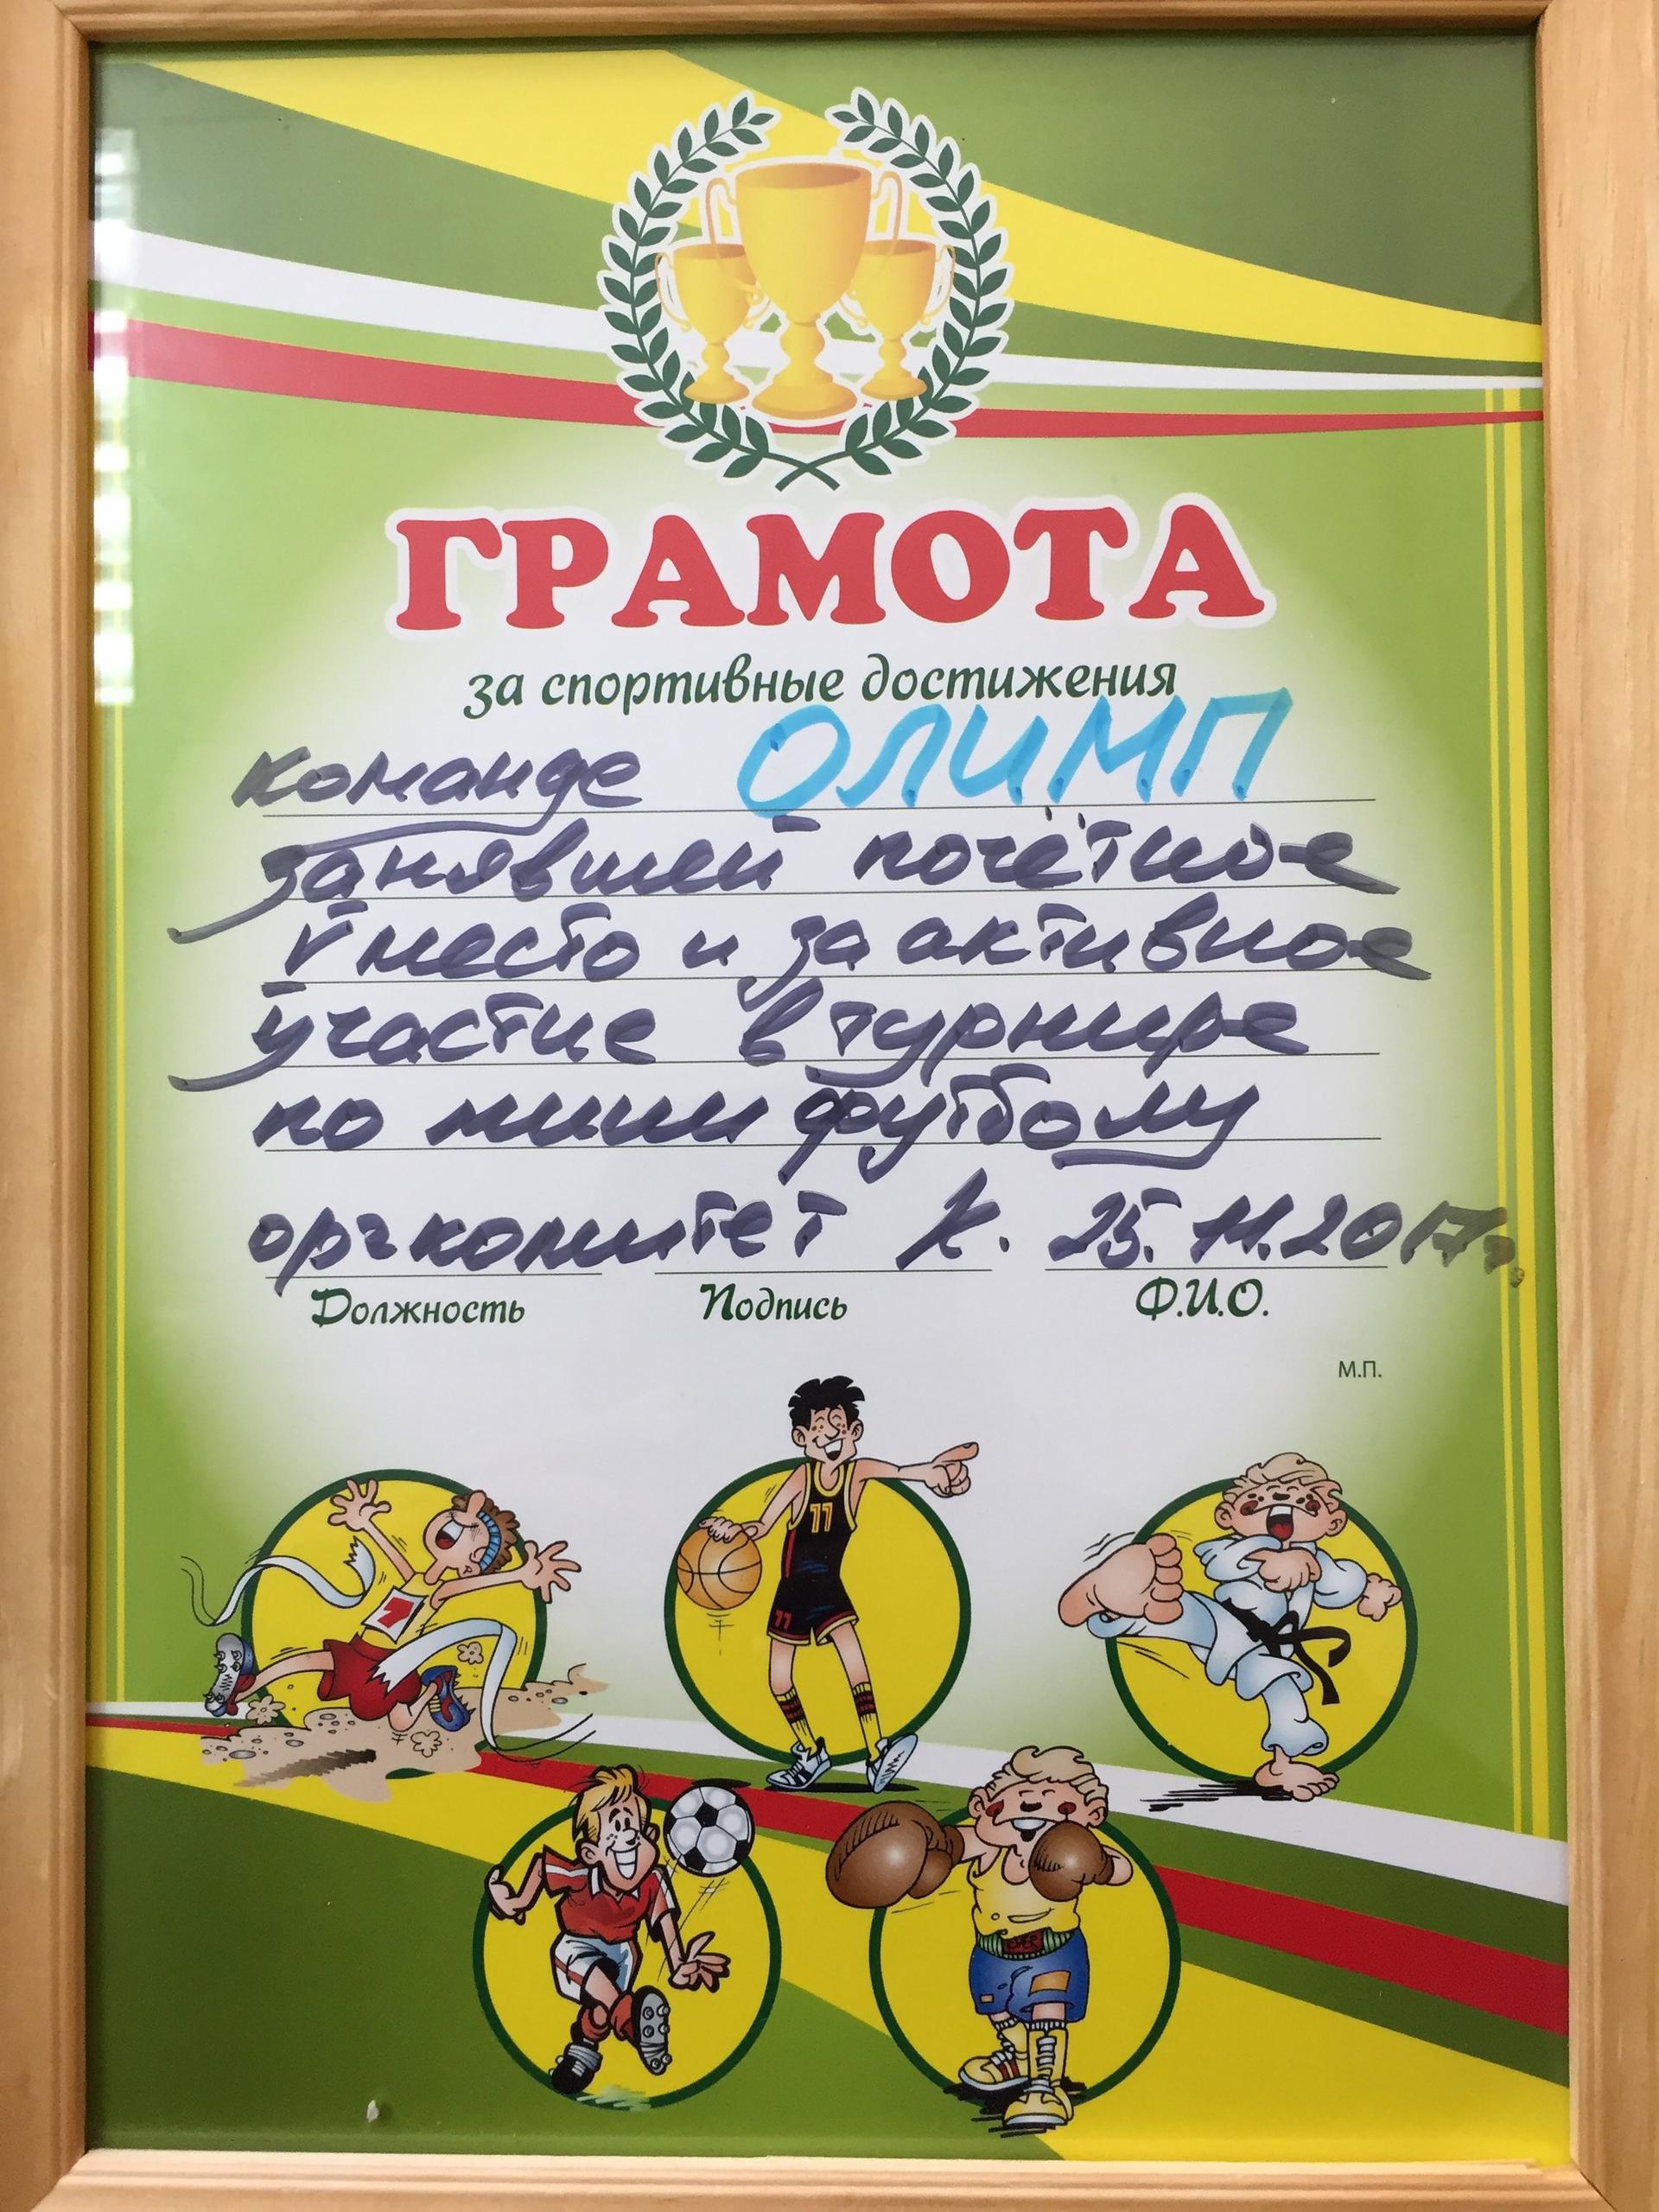 ГРАМОТА
за спортивные достижения
команде ОЛИМП
занявшей почётное
V место и за активное
участие в турнире
по мини футболу
оргкомитет К. 25.11.2017г.
Должность Подпись Ф.И.О.
М.П.
11
11
1
EVER